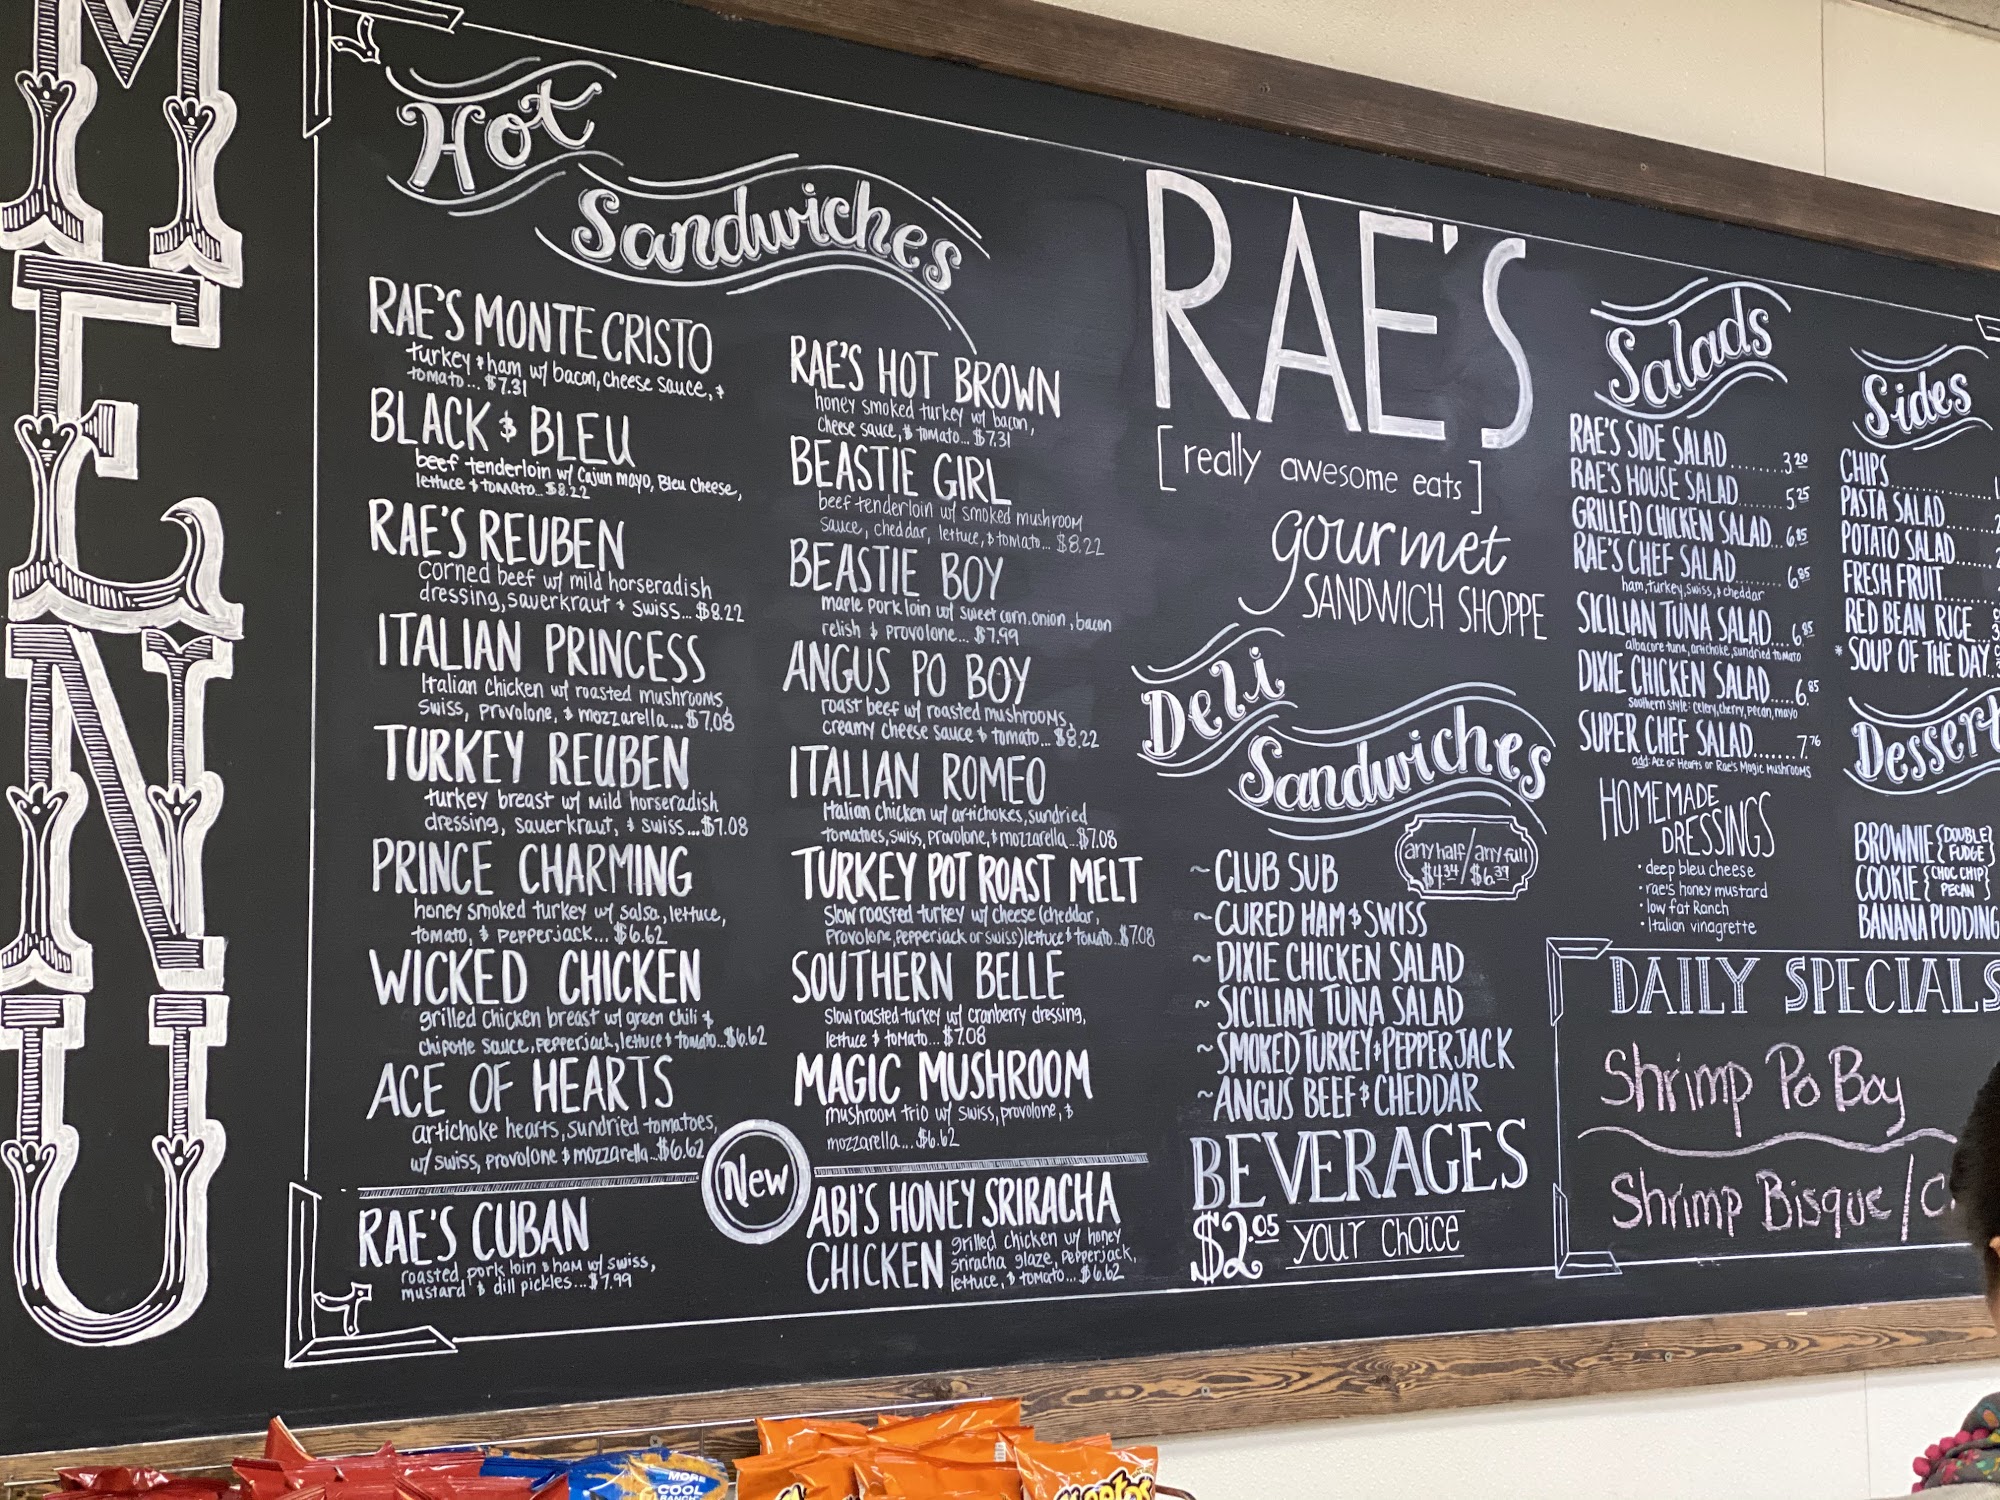 MENU
Hot
Sandwiches
RAE'S MONTE CRISTO
turkey & ham w/ bacon, cheese sauce, &
tomato... $7.31
BLACK & BLEU
beef tenderloin w/ Cajun mayo, Bleu Cheese,
lettuce & tomato... $8.22
RAE'S REUBEN
corned beef w/ mild horseradish
dressing, sauerkraut & swiss... $8.22
ITALIAN PRINCESS
Italian chicken w/ roasted mushrooms,
swiss, provolone, & mozzarella.... $7.08
TURKEY REUBEN
turkey breast w/ mild horseradish
dressing, sauerkraut, & swiss... $7.08
PRINCE CHARMING
honey smoked turkey w/ salsa, lettuce,
tomato, & pepperjack... $6.62
WICKED CHICKEN
grilled chicken breast w/ green chili &
chipotle sauce, pepperjack, lettuce & tomato... $6.62
ACE OF HEARTS
artichoke hearts, sundried tomatoes,
w/ swiss, provolone & mozzarella... $6.62
RAE'S HOT BROWN
honey smoked turkey w/ bacon,
cheese sauce, & tomato... $7.31
BEASTIE GIRL
beef tenderloin w/ smoked mushroom
sauce, cheddar, lettuce, & tomato... $8.22
BEASTIE BOY
maple pork loin w/ sweet corn, onion, bacon
relish & provolone... $7.99
ANGUS PO BOY
roast beef w/ roasted mushrooms,
creamy cheese sauce & tomato... $8.22
ITALIAN ROMEO
Italian Chicken w/ artichokes, sundried
tomatoes, swiss, provolone, & mozzarella... $7.08
TURKEY POT ROAST MELT
slow roasted turkey w/ cheese (cheddar,
provolone, pepperjack or swiss) lettuce & tomato... $7.08
SOUTHERN BELLE
slow roasted turkey w/ cranberry dressing,
lettuce & tomato... $7.08
MAGIC MUSHROOM
mushroom trio w/ swiss, provolone, &
mozzarella... $6.62
New
RAE'S CUBAN
roasted pork loin & ham w/ swiss,
mustard & dill pickles... $7.99
ABI'S HONEY SRIRACHA
CHICKEN
grilled chicken w/ honey
sriracha glaze, pepperjack,
lettuce, & tomato... $6.62
RAE'S
[really awesome eats]
gourmet
SANDWICH SHOPPE
Deli
Sandwiches
any half / any full
$4.34 / $6.39
~ CLUB SUB
~ CURED HAM & SWISS
~ DIXIE CHICKEN SALAD
~ SICILIAN TUNA SALAD
~ SMOKED TURKEY & PEPPER JACK
~ ANGUS BEEF & CHEDDAR
BEVERAGES
$2.05 your choice
Salads
RAE'S SIDE SALAD........3.20
RAE'S HOUSE SALAD.....5.25
GRILLED CHICKEN SALAD...6.85
RAE'S CHEF SALAD........6.85
ham, turkey, swiss, & cheddar
SICILIAN TUNA SALAD....6.85
albacore tuna, artichoke, sundried tomato
DIXIE CHICKEN SALAD....6.85
Southern style: celery, cherry, pecan, mayo
SUPER CHEF SALAD......7.76
add: Ace of Hearts or Rae's Magic Mushrooms
HOMEMADE
DRESSINGS
• deep bleu cheese
• rae's honey mustard
• low fat Ranch
• Italian vinagrette
Sides
CHIPS
PASTA SALAD
POTATO SALAD
FRESH FRUIT
RED BEAN RICE
* SOUP OF THE DAY
Dessert
BROWNIE {DOUBLE FUDGE}
COOKIE {CHOC CHIP PECAN}
BANANA PUDDING
DAILY SPECIALS
Shrimp Po Boy
Shrimp Bisque /
MORE
COOL
RANCH
Cheetos